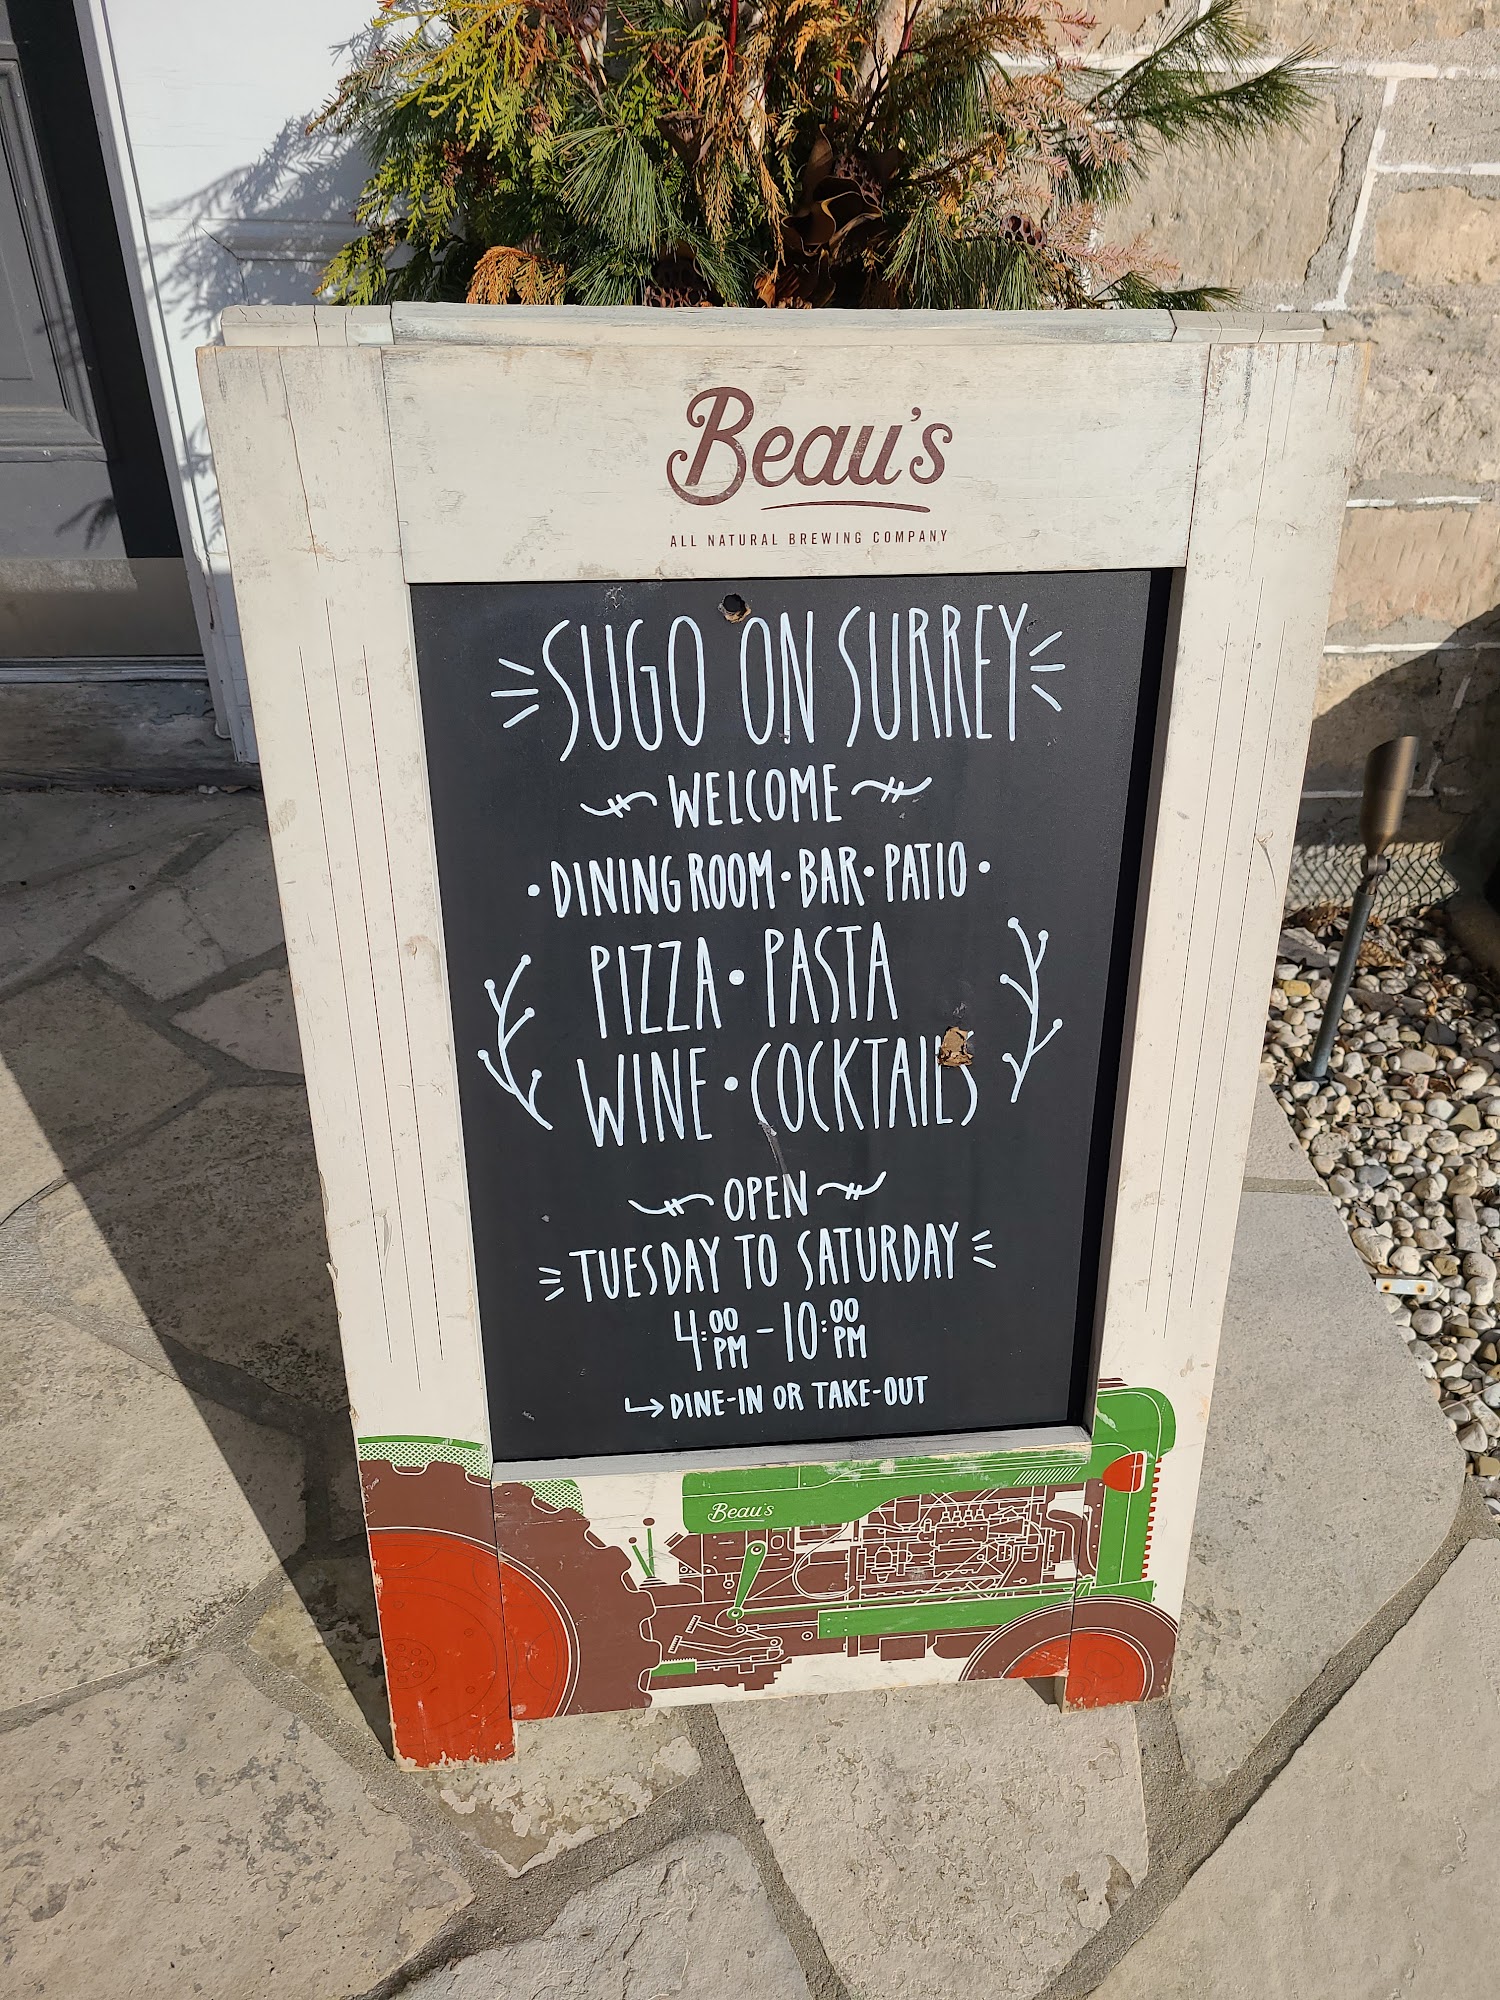 Beau's
ALL NATURAL BREWING COMPANY
SUGO ON SURREY
WELCOME
• DINING ROOM • BAR • PATIO •
PIZZA • PASTA
WINE • COCKTAILS
OPEN
TUESDAY TO SATURDAY
4:00 PM – 10:00 PM
↳ DINE-IN OR TAKE-OUT
Beau's